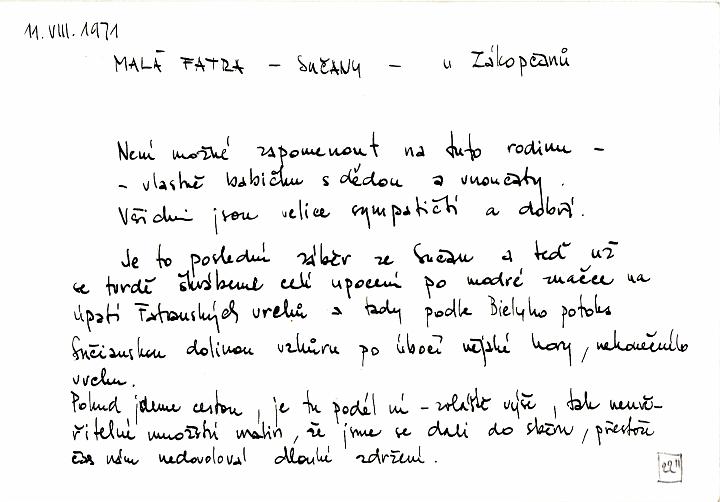 11. VIII. 1971
MALÁ FATRA - SUČANY - u Zákopčanů
Není možné zapomenout na tuto rodinu -
- vlastně babičku s dědou a vnoučaty.
Všichni jsou velice sympatičtí a dobří.
Je to poslední záběr ze Sučan a teď už
se tvrdě škrábeme celí upocení po modré značce na
úpatí Fatranských vrchů a tady podle Bielyho potoka
Sučianskou dolinou vzhůru po úbočí nějaké hory, nekonečného
vrchu.
Pokud jdeme cestou, je tu podél ní - zvláště výše, tak neuvě-
řitelné množství malin, že jsme se dali do sběru, přestože
čas nám nedovoloval dlouhé zdržení.
22"